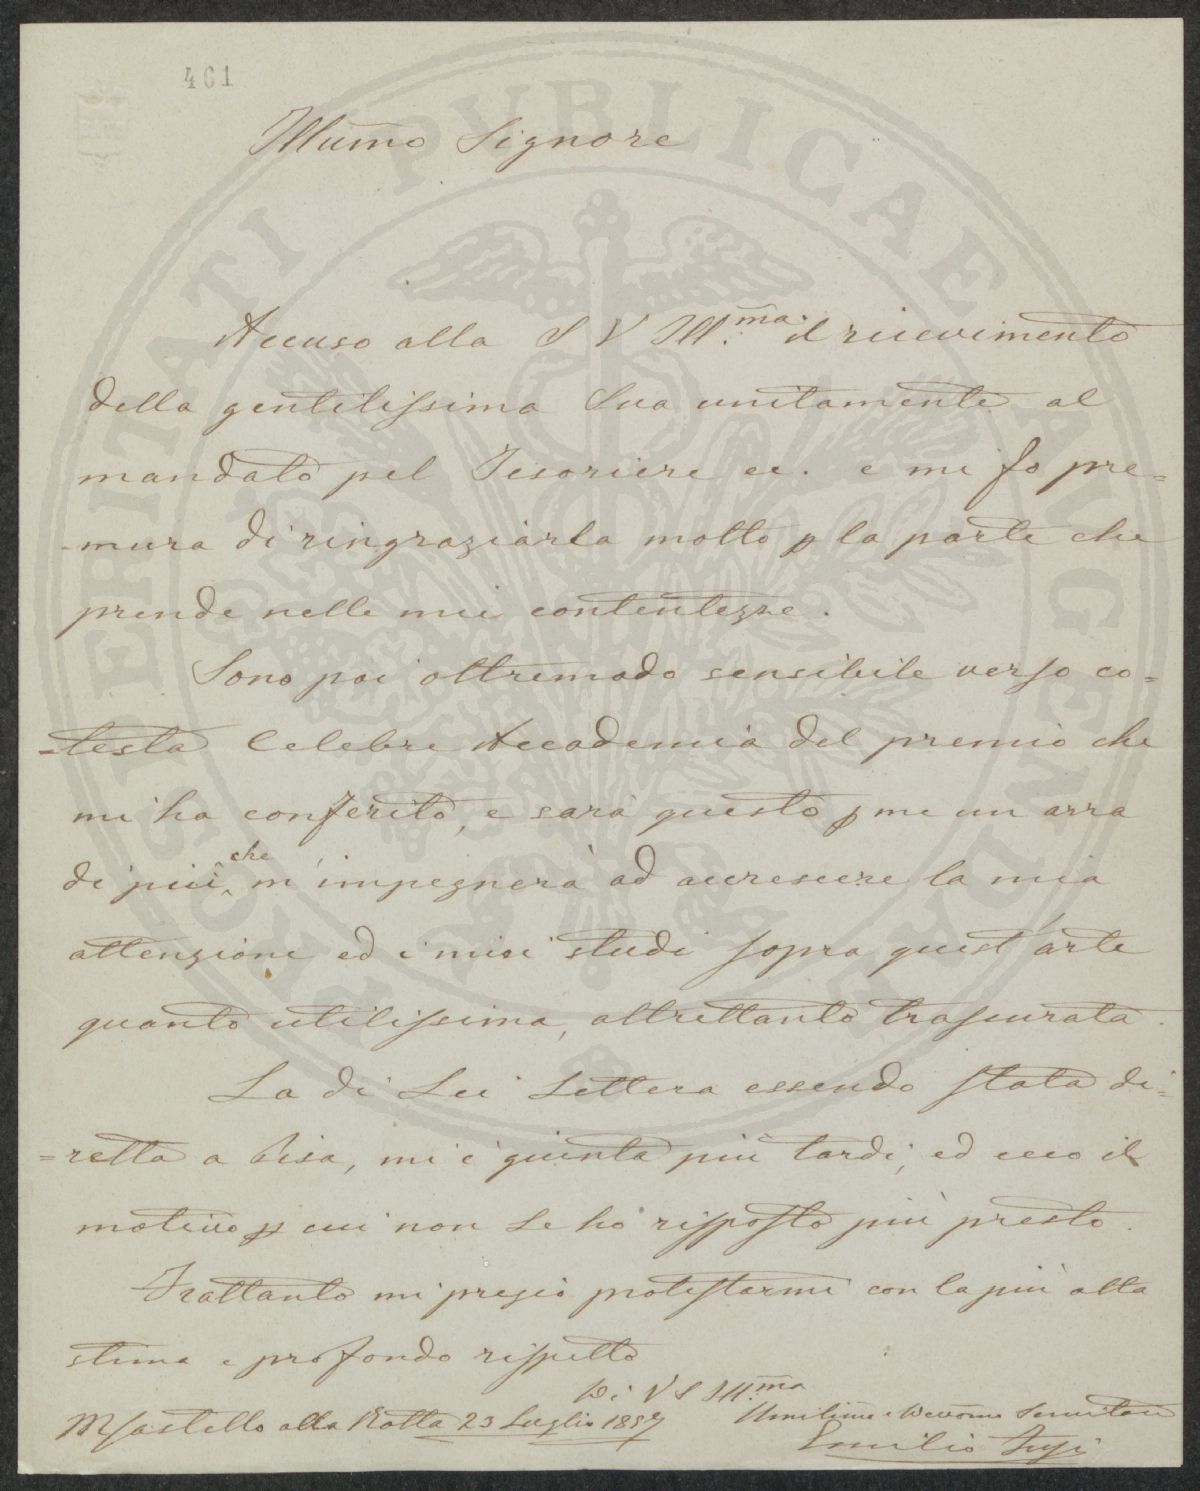 461
Illumo Signore
Accuso alla S V Ill.ma il ricevimento
della gentilissima Sua unitamente al
mandato pel Tesoriere ec. e mi fo pre=
-mura di ringraziarla molto p la parte che
prende nelle mie contentezze.
Sono poi oltremodo sensibile verso co=
=testa Celebre Accademia del premio che
mi ha conferito, e sarà questo p me un arra
di più che m'impegnerà ad accrescere la mia
attenzione ed i miei studi sopra quest'arte
quanto utilissima, altrettanto trascurata.
La di Lei Lettera essendo stata di=
=retta a Pisa, mi è giunta più tardi, ed ecco il
motivo p cui non Le ho risposto più presto.
Frattanto mi pregio protestarmi con la più alta
stima e profondo rispetto
Di V S Ill.ma
Castello alla 23 Luglio 1857
Umilimo Devomo Servitore
Emilio